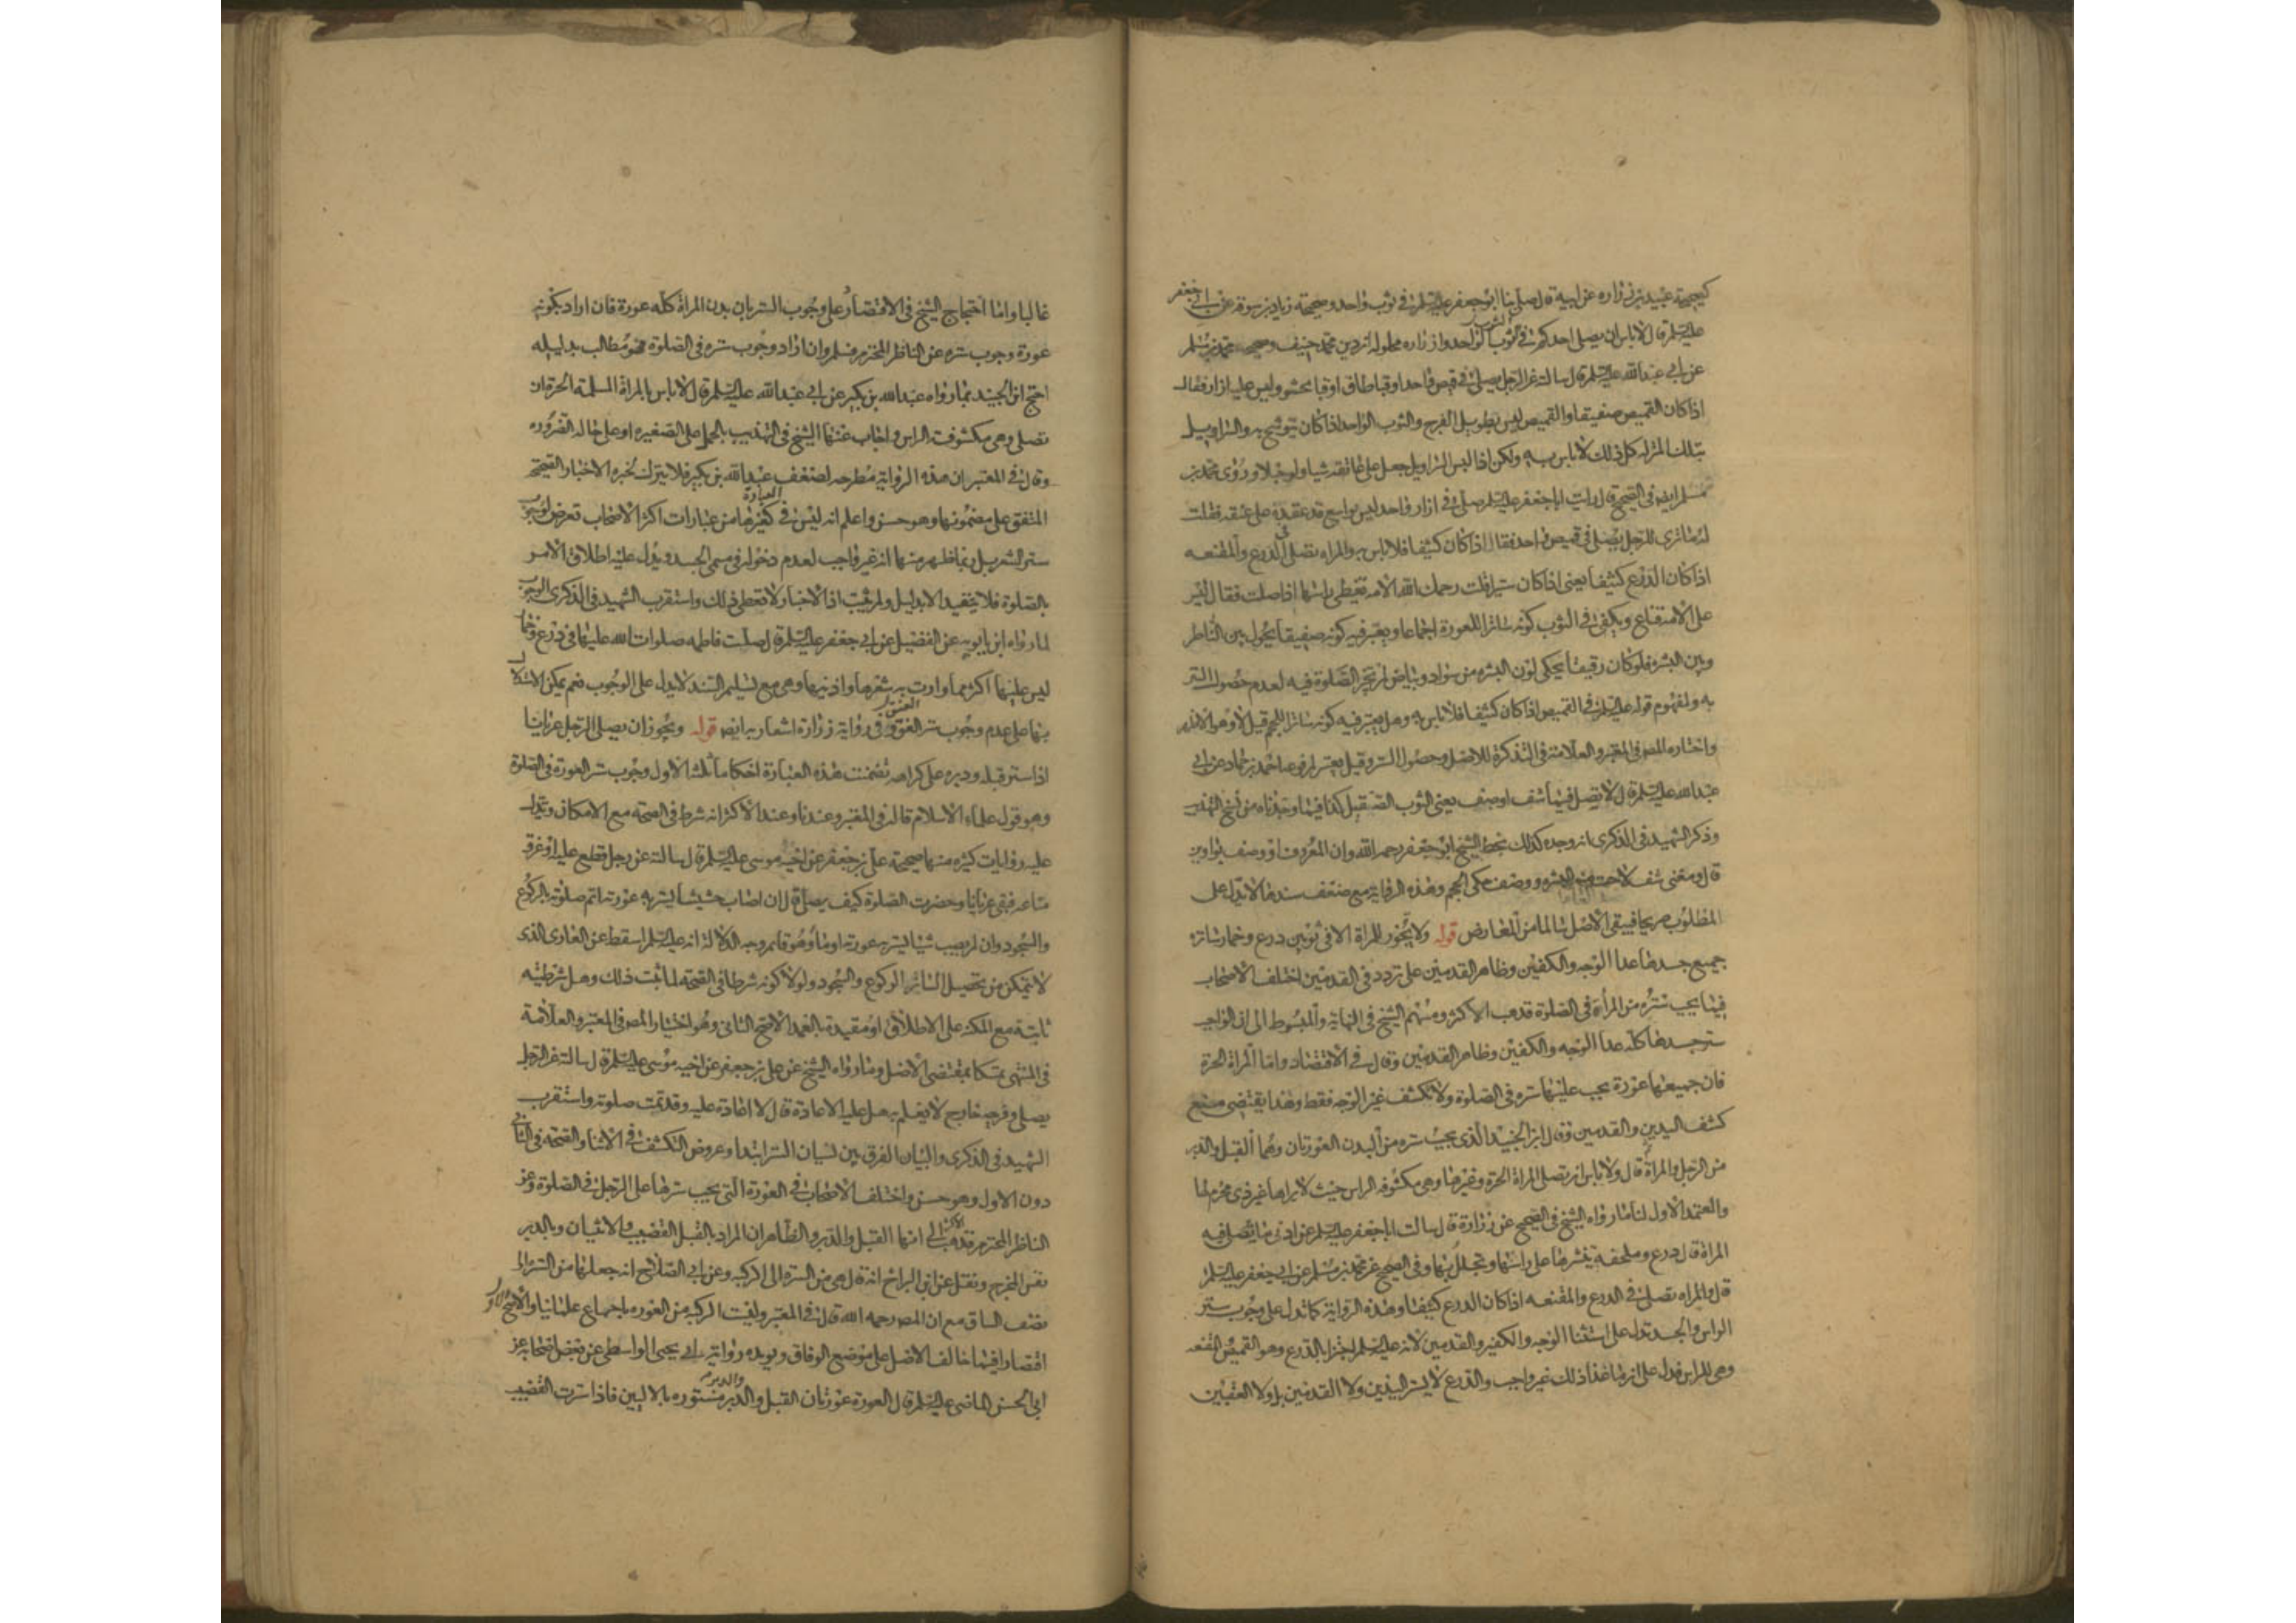 كصحيحة عبيد بن زراره عن ابيه قال صلى بنا ابو جعفر عليه السلم في ثوب واحد وصحيحة زياد بن سوقه عن ابي جعفر
عليه السلم قال لا باس ان يصلى احدكم في الثوب الواحد وازراره محلولة ان دين محمد حنيف وصحيحه محمد بن مسلم
عن ابي عبد الله عليه السلم قال سالته عن الرجل يصلي في قميص واحد او قبا طاق او قبا محشو وليس عليه ازار فقال
اذا كان القميص صفيقا والقميص ليس بطويل الفرج والثوب الواحد اذا كان يتوشح به والسراويل
بتلك المنزله كل ذلك لا باس به ولكن اذا لبس السراويل جعل على عاتقه شيا ولو حبلا وروى محمد بن
مسلم ايضا في الصحيح قال رايت ابا جعفر عليه السلم صلى في ازار واحد ليس بواسع قد عقده على عنقه فقلت
له ما ترى للرجل يصلى في قميص واحد فقال اذا كان كثيفا فلا باس به والمراه تصلي في الدرع والمقنعه
اذا كان الدرع كثيفا يعنى اذا كان ستيرا قلت رحمك الله الامه تغطى راسها اذا صلت فقال ليس
على الامه قناع ويكفى في الثوب كونه ساترا للعورة اجماعا ويعتبر فيه كونه صفيقا يحول بين الناظر
وبين البشره فلو كان رقيقا يحكى لون البشره من سواد وبياض لم تجز الصلوة فيه لعدم حصول الستر
به ولمفهوم قوله عليه السلم في القميص اذا كان كثيفا فلا باس به وهل يعتبر فيه كونه ساترا للحجم قيل لا وهو الاظهر
واختاره المص في المعتبر والعلامة في التذكرة للاصل وحصول الستر وقيل يعتبر لمرفوعه احمد بن حماد عن ابي
عبد الله عليه السلم قال لا تصل فيما شف او صف يعنى الثوب الصقيل كذا فيما وجدناه من نسخ التهذيب
وذكر الشهيد في الذكرى انه وجده كذلك بخط الشيخ ابو جعفر رحمه الله وان المعروف او وصف بواوين
قال ومعنى شف لاحت منه البشره ووصف حكى الحجم وهذه الرواية مع ضعف سندها لا تدل على
المطلوب صريحا فيبقى الاصل سالما من المعارض قوله ولا يجوز للمراة الا في ثوبين درع وخمار ساتره
جميع جسدها عدا الوجه والكفين وظاهر القدمين على تردد في القدمين اختلف الاصحاب
فيما يجب ستره من المرأة في الصلوة فذهب الاكثر ومنهم الشيخ في النهاية والمبسوط الى ان الواجب
ستر جسدها كله عدا الوجه والكفين وظاهر القدمين وقال في الاقتصاد واما المراة الحرة
فان جميعها عورة يجب عليها ستره في الصلوة ولا تكشف غير الوجه فقط وهذا يقتضى منع
كشف اليدين والقدمين وقال ابن الجنيد الذى يجب ستره من البدن العورتان وهما القبل والدبر
من الرجل والمراة قال ولا باس ان تصلى المراة الحرة وغيرها وهى مكشوفه الراس حيث لا يراها غير ذى محرم لها
والمعتمد الاول لنا ما رواه الشيخ في الصحيح عن زرارة قال سالت ابا جعفر عليه السلم عن ادنى ما تصلى فيه
المراة قال درع وملحفة تنشرها على راسها وتجلل بها وفي الصحيح عن محمد بن مسلم عن ابي جعفر عليه السلم
قال والمراه تصلى في الدرع والمقنعه اذا كان الدرع كثيفا وهذه الرواية كما تدل على وجوب ستر
الراس والجسد تدل على استثنا الوجه والكفين والقدمين لانه عليه السلم اجتزا بالدرع وهو القميص والمقنعه
وهى للراس فدل على ان ما عدا ذلك غير واجب والدرع لا يستر اليدين ولا القدمين بل ولا العقبين
غالبا واما احتجاج الشيخ في الاقتصاد على وجوب الستر بان بدن المراة كله عورة فان اراد بكونه
عورة وجوب ستره عن الناظر المحترم فمسلم وان اراد وجوب ستره في الصلوة فهو مطالب بدليله
احتج ابن الجنيد بما رواه عبد الله بن بكير عن ابي عبد الله عليه السلم قال لا باس بالمراة المسلمة الحرة ان
تصلى وهى مكشوفت الراس واجاب عنها الشيخ في التهذيب بالحمل على الصغيره او على حالة الضروره
وقال في المعتبر ان هذه الرواية مطرحه لضعف عبد الله بن بكير فلا يترك لخبره الاخبار الصحيحه
المتفق على مضمونها وهو حسن واعلم انه ليس في العبارة كغيرها من عبارات اكثر الاصحاب تعرض لوجوب
ستر الشعر بل ربما ظهر منها انه غير واجب لعدم دخوله في مسمى الجسد ويدل عليه اطلاق الامر
بالصلوة فلا يتقيد الا بدليل ولم يثبت اذ الاخبار لا تعطى ذلك واستقرب الشهيد في الذكرى الوجوب
لما رواه ابن بابويه عن الفضيل عن ابي جعفر عليه السلم قال صلت فاطمه صلوات الله عليها في درع وخمار
ليس عليها اكثر مما وارت به شعرها واذنيها وهى مع تسليم السند لا تدل على الوجوب نعم يمكن الاستدلال
بها على عدم وجوب ستر العنق وفي رواية زرارة اشعار به ايض قوله ويجوز ان يصلى الرجل عريانا
اذا ستر قبله ودبره على كراهه تضمنت هذه العبارة احكاما ثلثة الاول وجوب ستر العورة في الصلوة
وهو قول علماء الاسلام قال في المعتبر وعندنا وعند الاكثر انه شرط في الصحه مع الامكان ويدل
عليه روايات كثيره منها صحيحة على بن جعفر عن اخيه موسى عليه السلم قال سالته عن رجل قطع عليه او غرق
متاعه فبقى عريانا وحضرت الصلوة كيف يصلى قال ان اصاب حشيشا يستر به عورته اتم صلوته بالركوع
والسجود وان لم يصب شيئا يستر به عورته اوما وهو قائم وجه الدلالة انه عليه السلم اسقط عن العارى الذى
لا يتمكن من تحصيل الساتر الركوع والسجود ولولا كونه شرطا في الصحة لما ثبت ذلك وهل شرطيته
ثابتة مع المكنه على الاطلاق او مقيدة بالعمد الاصح الثانى وهو اختيار المص في المعتبر والعلامة
في المنتهى تمسكا بمقتضى الاصل وما رواه الشيخ عن على بن جعفر عن اخيه موسى عليه السلم قال سالته عن الرجل
يصلى وفرجه خارج لا يعلم به هل عليه الاعادة قال لا اعادة عليه وقد تمت صلوته واستقرب
الشهيد في الذكرى والبيان الفرق بين نسيان الستر ابتدا وعروض التكشف في الاثنا والصحه في الثانى
دون الاول وهو حسن واختلف الاصحاب في العورة التى يجب سترها على الرجل في الصلوة وعن
الناظر المحترم فذهب الاكثر الى انها القبل والدبر والظاهر ان المراد بالقبل القضيب والانثيان وبالدبر
نفس المخرج ونقل عن ابن البراج انه قال هى من السرة الى الركبه وعن ابي الصلاح انه جعلها من السره الى
نصف الساق مع ان المص رحمه الله قال في المعتبر وليست الركبه من العوره باجماع علمائنا والاصح الاول
اقتصارا فيما خالف الاصل على موضع الوفاق ويويده رواية ابي يحيى الواسطى عن بعض اصحابه عن
ابي الحسن الماضى عليه السلم قال العورة عورتان القبل والدبر والدبر مستوره بالاليين فاذا سترت القضيب